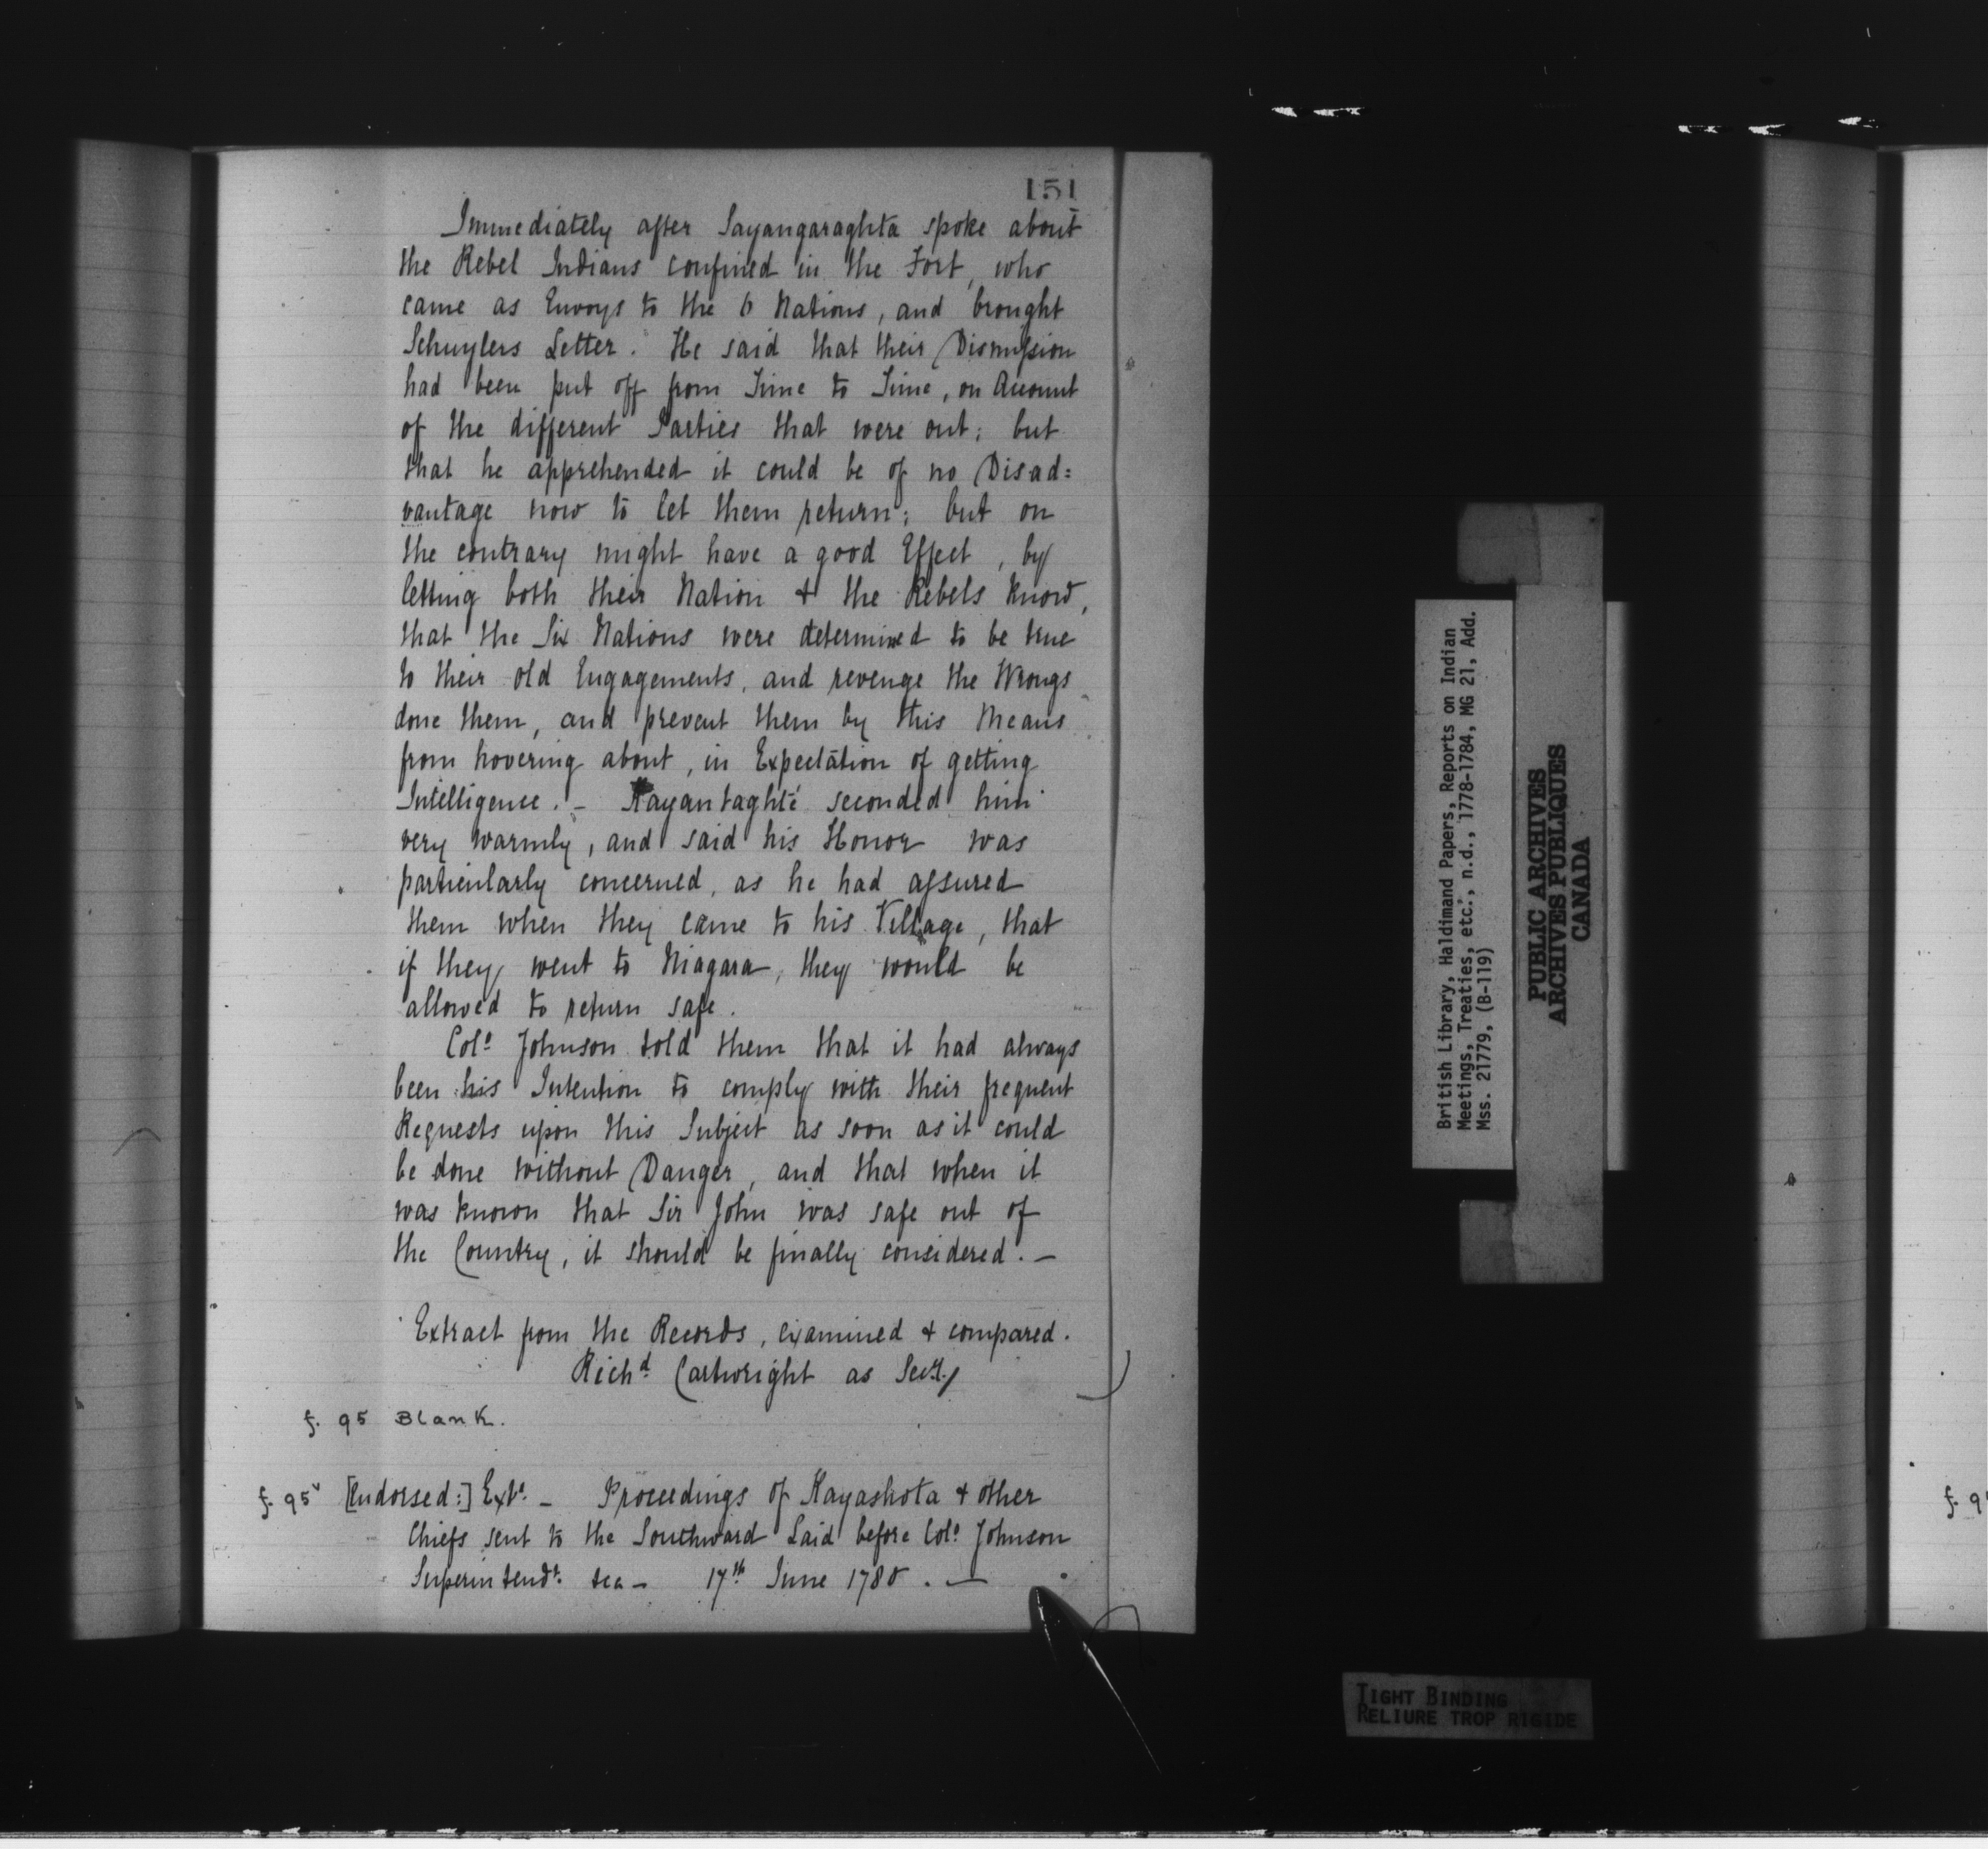 151
Immediately after Sayangaraghta spoke about
the Rebel Indians confined in the Fort, who
came as Envoys to the 6 Nations, and brought
Schuylers Letter. He said that their Dismission
had been put off from Time to Time, on Account
of the different Parties that were out; but
that he apprehended it could be of no Disad=
vantage now to let them return; but on
the contrary might have a good Effect, by
letting both their Nation & the Rebels know,
that the Six Nations were determined to be true
to their old Engagements, and revenge the Wrongs
done them, and prevent them by this Means
from hovering about, in Expectation of getting
Intelligence. – Kayantaghté seconded him
very warmly, and said his Honor was
particularly concerned, as he had assured
them when they came to his Village, that
if they went to Niagara, they would be
allowed to return safe.
Colo. Johnson told them that it had always
been his Intention to comply with their frequent
Requests upon this Subject as soon as it could
be done without Danger, and that when it
was known that Sir John was safe out of
the Country, it should be finally considered. –
Extract from the Records, examined & compared.
Richd. Cartwright as Secry.
f. 95 Blank.
f. 95v [Endorsed:] Extr. – Proceedings of Kayashota & other
Chiefs sent to the Southward Laid before Colo. Johnson
Superintendt. &ca – 17th June 1780. –
British Library, Haldimand Papers, Reports on Indian
Meetings, Treaties, etc., n.d., 1778-1784, MG 21, Add.
Mss. 21779, (B-119)
PUBLIC ARCHIVES
ARCHIVES PUBLIQUES
CANADA
TIGHT BINDING
RELIURE TROP RIGIDE